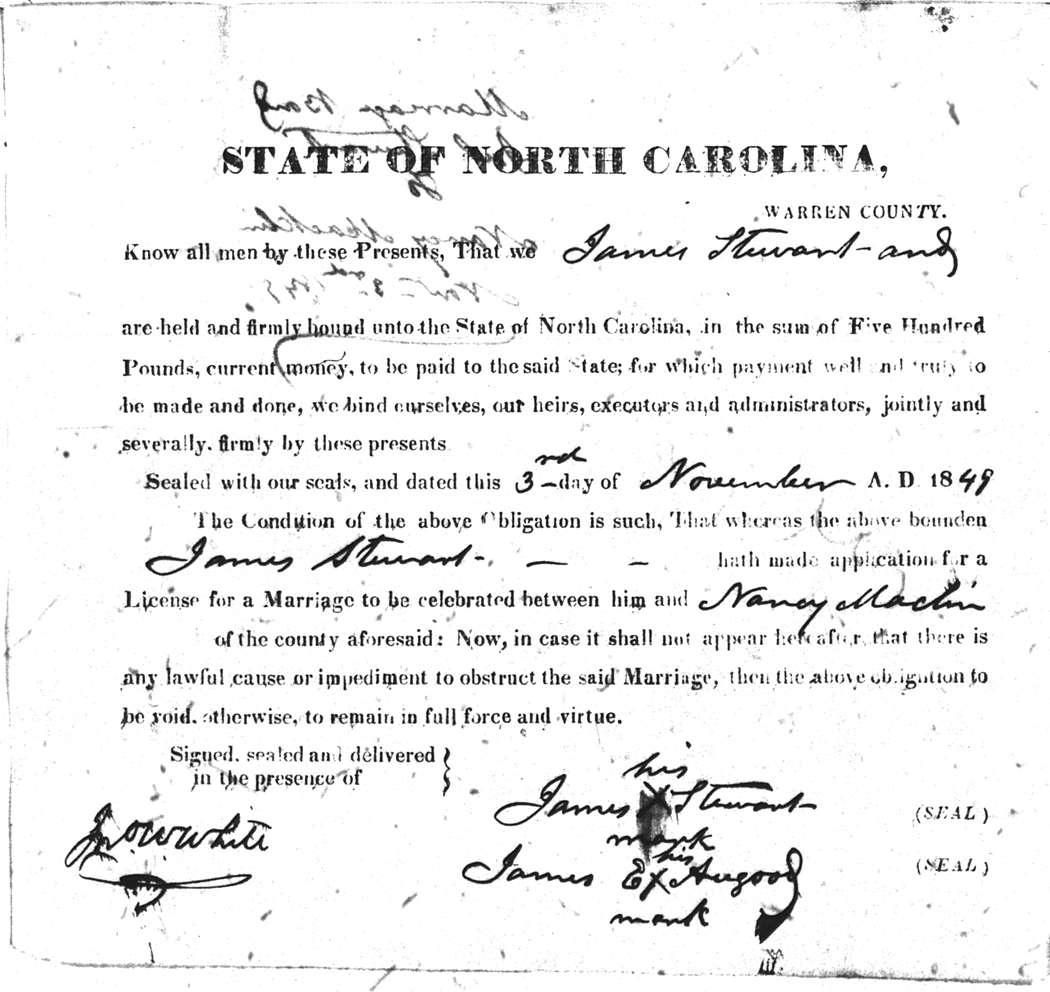 Marriage Bond
to
Nancy Macklin
STATE OF NORTH CAROLINA,
WARREN COUNTY.
Know all men by these Presents, That we James Stewart and
are held and firmly bound unto the State of North Carolina, in the sum of Five Hundred
Pounds, current money, to be paid to the said State; for which payment well and truly to
be made and done, we bind ourselves, our heirs, executors and administrators, jointly and
severally, firmly by these presents
Sealed with our seals, and dated this 3rd day of November A. D. 1849
The Condition of the above Obligation is such, That whereas the above bounden
James Stewart - - - hath made application for a
License for a Marriage to be celebrated between him and Nancy Maclin
of the county aforesaid: Now, in case it shall not appear hereafter, that there is
any lawful cause or impediment to obstruct the said Marriage, then the above obligation to
be void, otherwise, to remain in full force and virtue.
Signed, sealed and delivered
in the presence of
his
James X Stewart (SEAL)
mark
Jno W White
his
James E X (SEAL)
mark